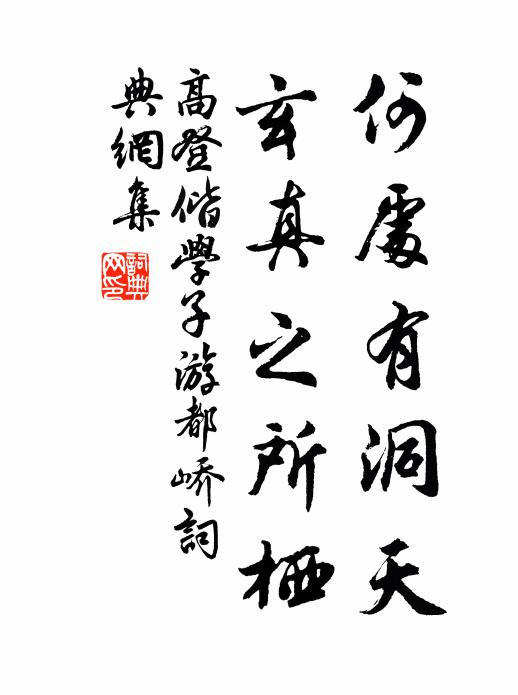 何處有洞天
玄真之所栖
高登偕學子游都嶠詞
典網集
詞典
网印